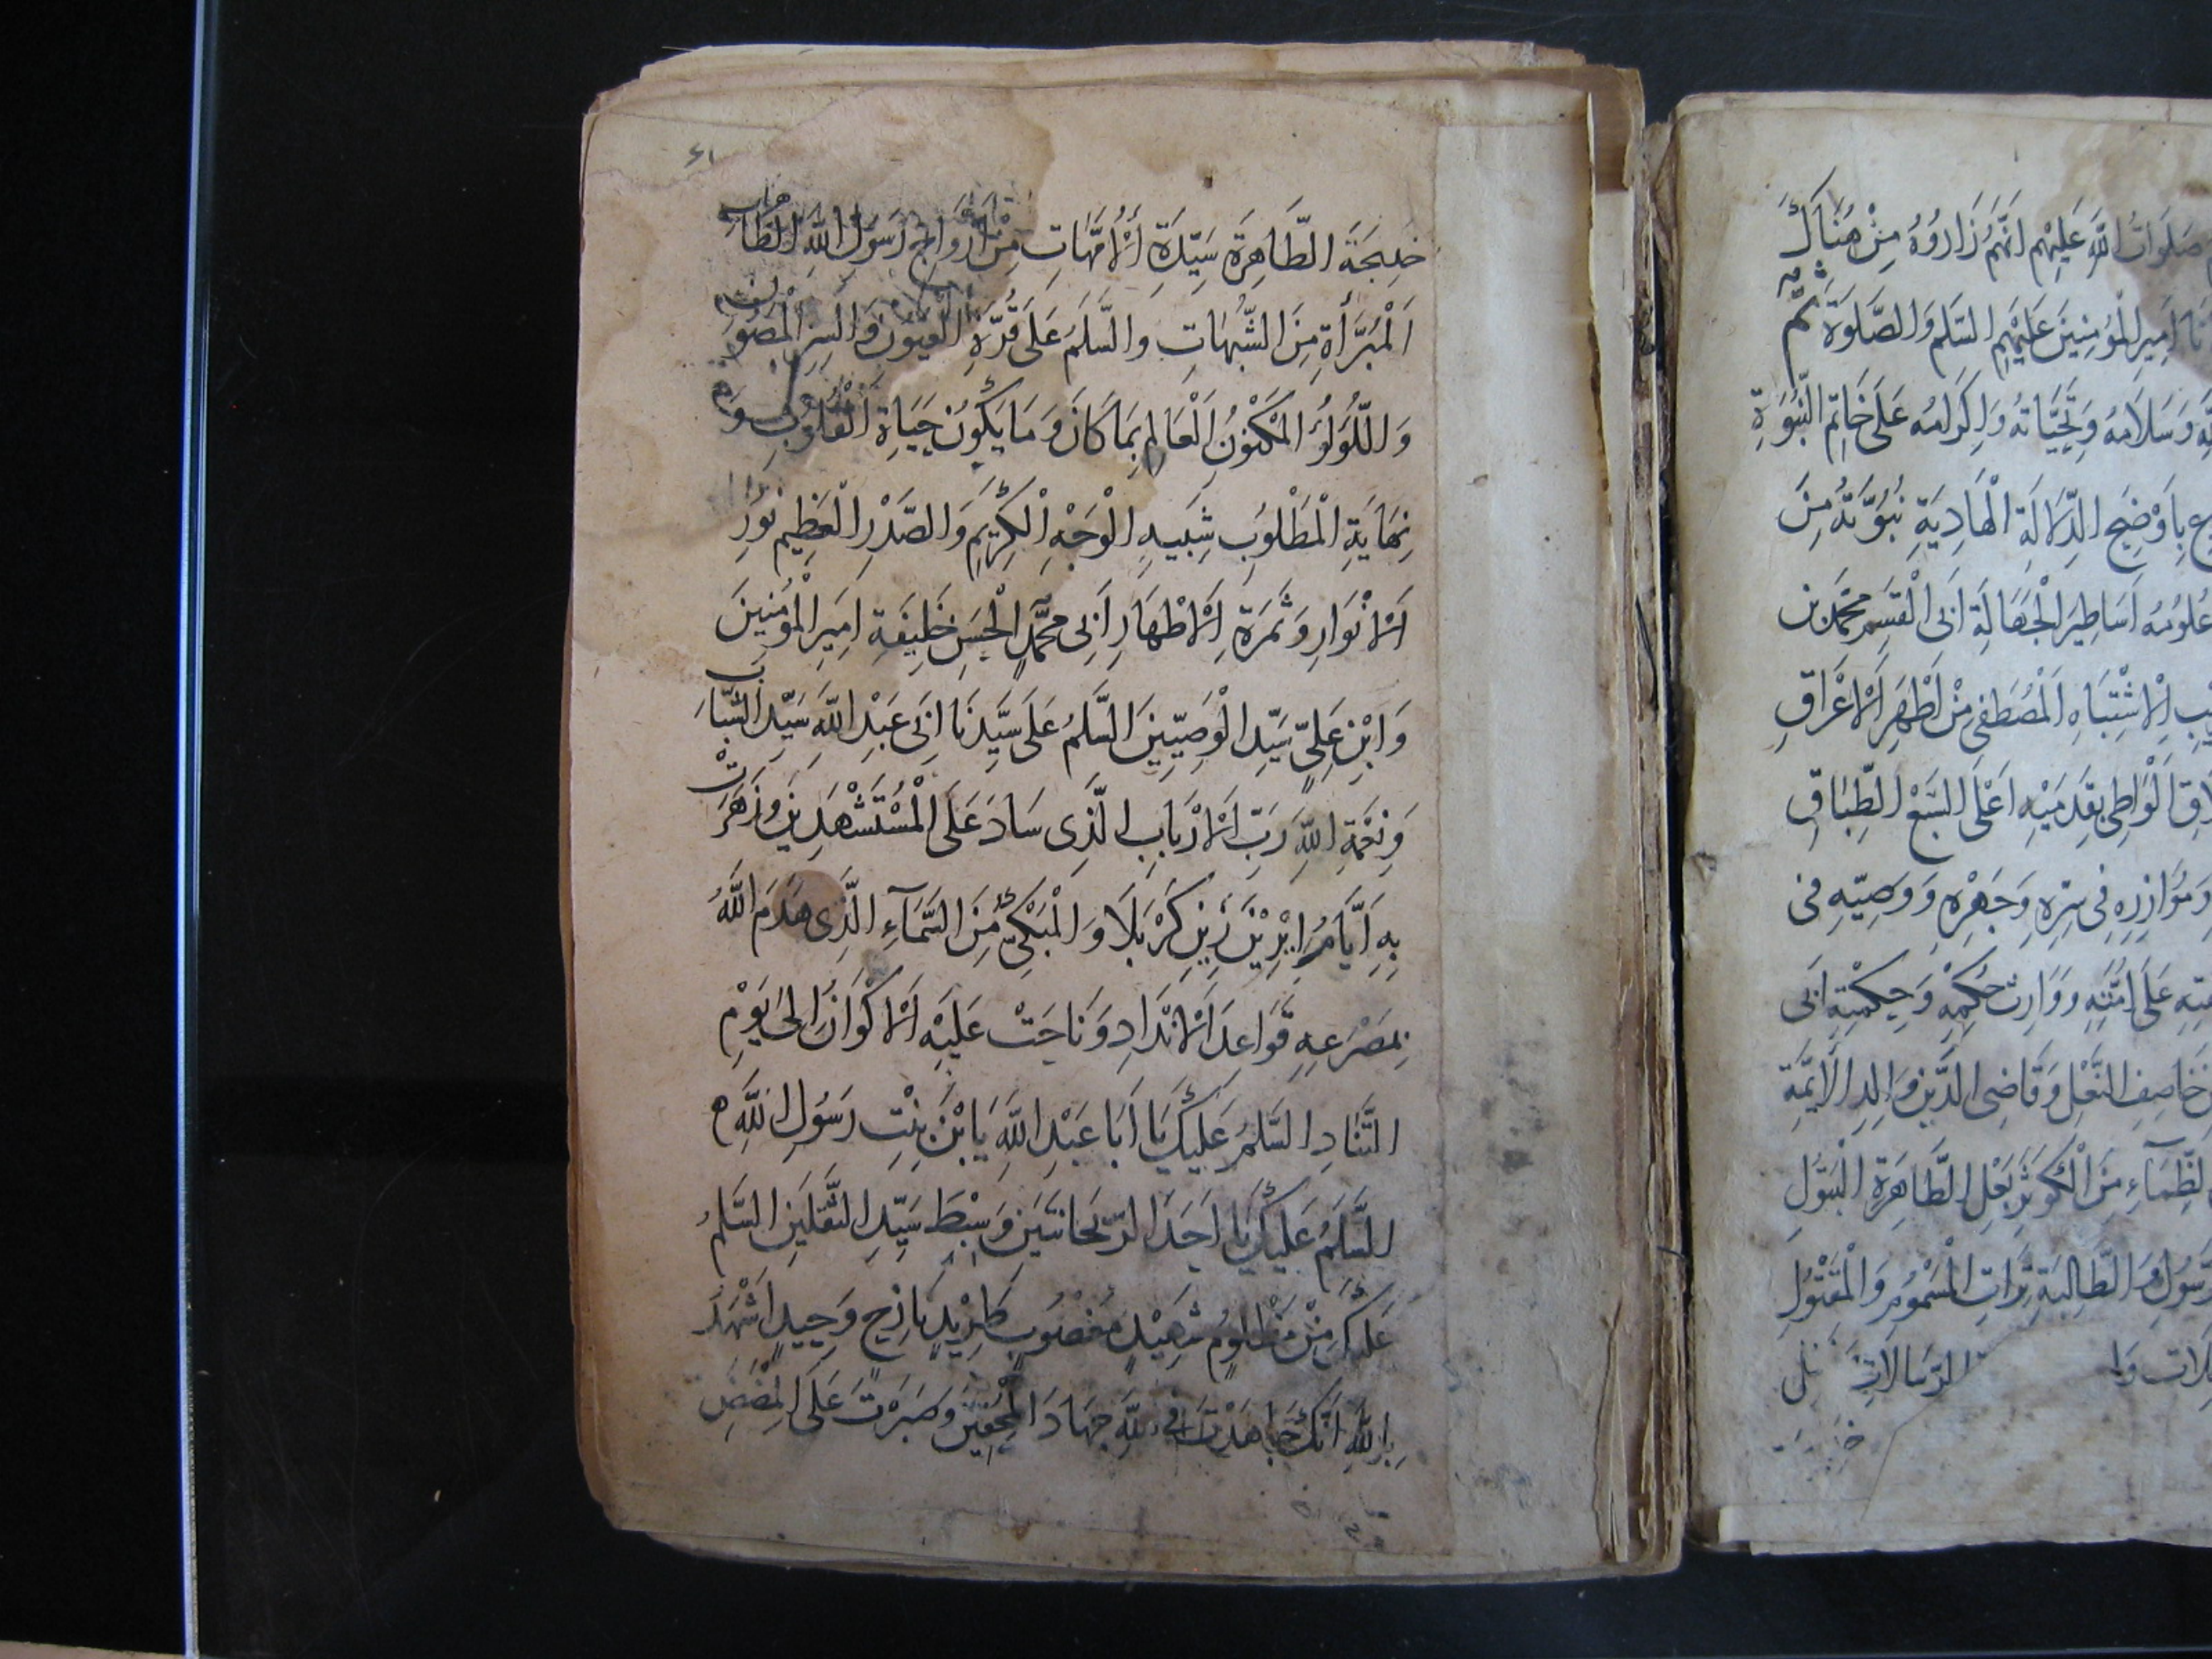 صلوات الله عليهم انهم زاروه من هناك
امير المؤمنين عليهم السلم والصلوة ثم
وسلامه وتحياته واكرامه على خاتم النبوة
باوضح الدلالة الهادية نبوته من
علومه اساطير الجهالة ابى القسم محمد بن
الاشتباه المصطفى من اطهر الاعراق
الواطى بقدميه اعلى السبع الطباق
وموازره فى سره وجهره ووصيه فى
على امته ووارث حكمه وحكمته ابى
خاصف النعل وقاضى الدين ووالد الائمة
الظماء من الكوثر بعل الطاهرة البتول
الرسول والطالبة تراث المسموم والمقتول
الرسالات
٤١
خديجة الطاهرة سيدة الامهات من ازواج رسول الله الطاهرات
المبرأة من الشبهات والسلم على قرة العيون والسر المصون
واللؤلؤ المكنون العالم بما كان وما يكون حياة القلوب و
نهاية المطلوب شبيه الوجه الكريم والصدر العظيم نور
الانوار وثمرة الاطهار أبى محمد الحسن خليفة امير المؤمنين
وابن على سيد الوصيين السلم على سيدنا ابى عبد الله سيد الشباب
ونعمة الله رب الارباب الذى ساد على المستشهدين وزهرت
به أيام كربلا والمبكى من السماء الذى هدم الله
بمصرعه قواعد الانداد وناحت عليه الاكوان الى يوم
التناد السلم عليك يا أبا عبد الله يا بن بنت رسول الله
السلم عليك يا احد الريحانتين وسبط سيد الثقلين السلم
عليك من مظلوم شهيد مغصوب طريد نازح وحيد اشهد
بالله انك جاهدت فى الله جهاد المحقين وصبرت على المضض